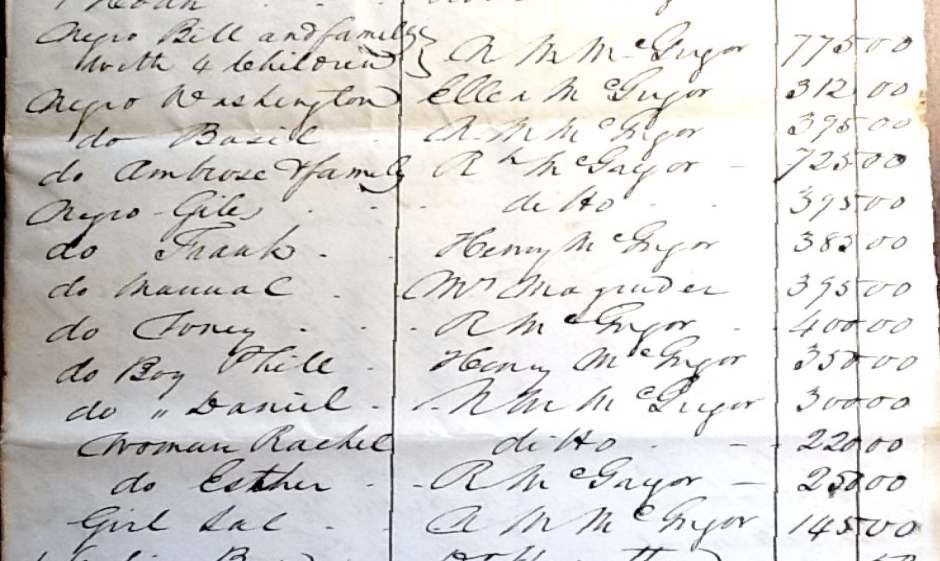 Negro Bill and family
with 4 Children } N M McGregor 775 00
Negro Washington Ellen McGregor 312 00
do Basil N M McGregor 395 00
do Ambrose & family R M McGregor - 725 00
Negro Giles ditto 395 00
do Frank Henry McGregor 385 00
do Manual Mrs Magruder 395 00
do Toney R McGregor 400 00
do Boy Phill Henry McGregor 350 00
do " Daniel N M McGregor 300 00
Woman Rachel ditto 220 00
do Esther R McGregor - 250 00
Girl Sal N M McGregor 145 00